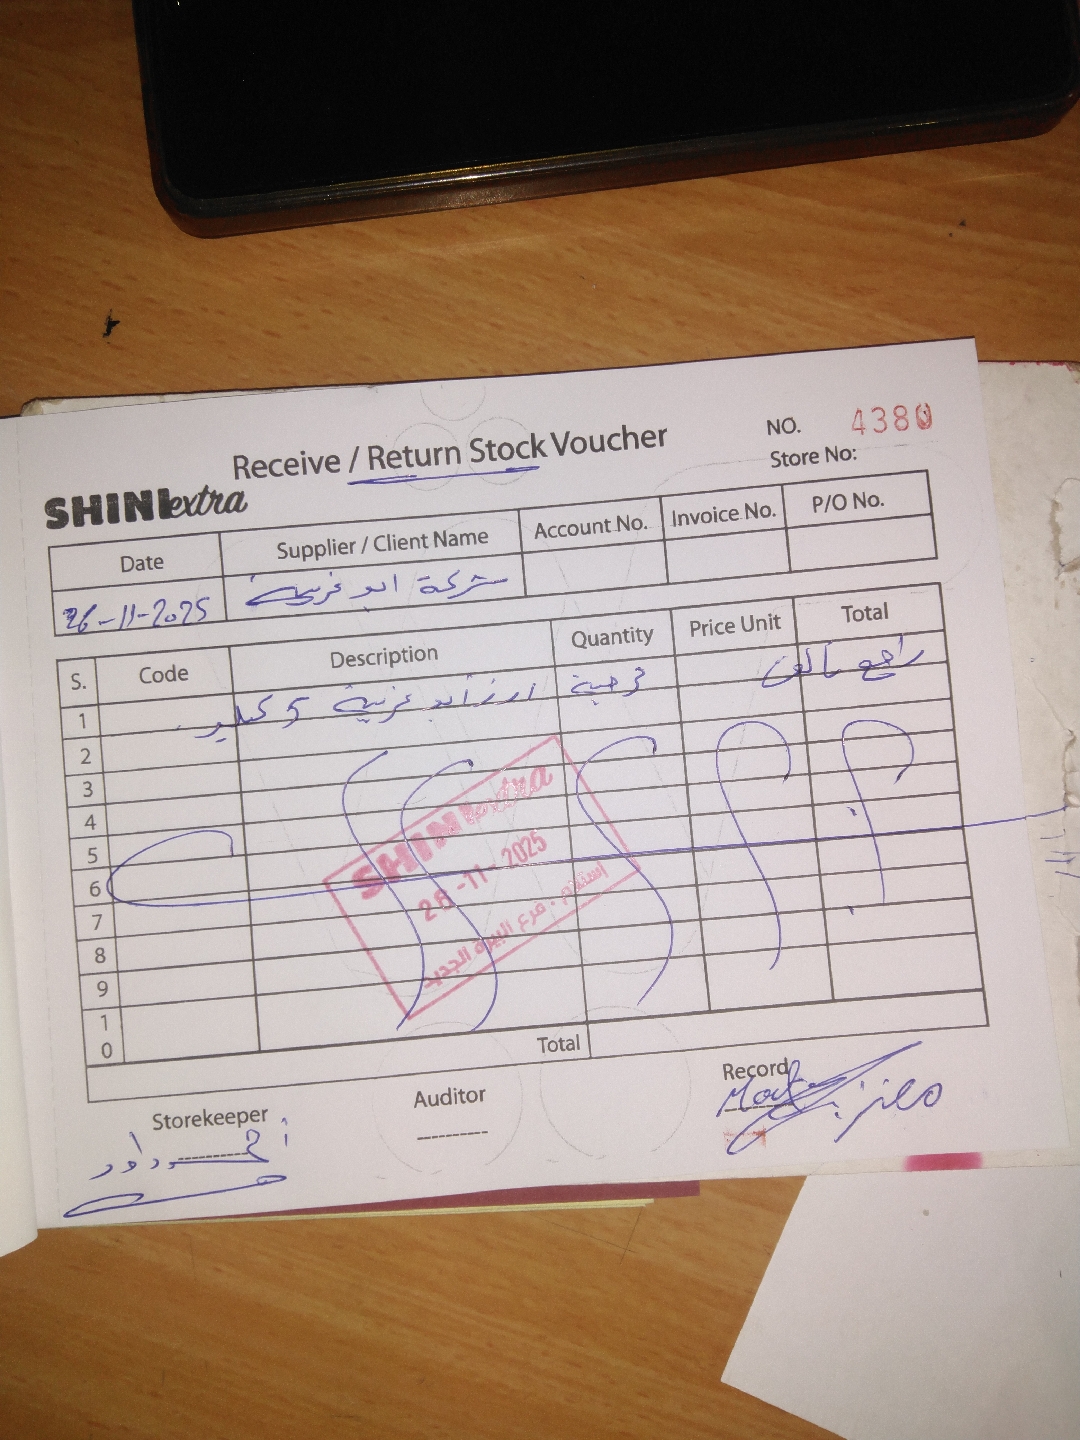 Receive / Return Stock Voucher
NO. 4380
Store No:
SHINI extra
Date Supplier / Client Name Account No. Invoice No. P/O No.
26-11-2025 شركة ابو غزية
S. Code Description Quantity Price Unit Total
1 ارز ابو غزية 5 كيلو حبة راجع تالف
2
3
4
5
6
7
8
9
10
Total
SHINI extra
26-11-2025
استلام - فرع البيرة الجديد
Storekeeper
Auditor
Record